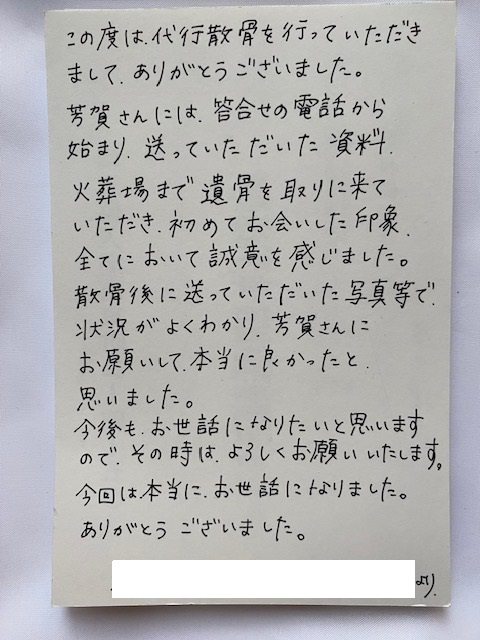 この度は、代行散骨を行っていただき
まして、ありがとうございました。
芳賀さんには、答合せの電話から
始まり、送っていただいた資料、
火葬場まで遺骨を取りに来て
いただき、初めてお会いした印象、
全てにおいて誠意を感じました。
散骨後に送っていただいた写真等で、
状況がよくわかり、芳賀さんに
お願いして、本当に良かったと、
思いました。
今後も、お世話になりたいと思います
ので、その時は、よろしくお願いいたします。
今回は、本当に、お世話になりました。
ありがとうございました。
より、